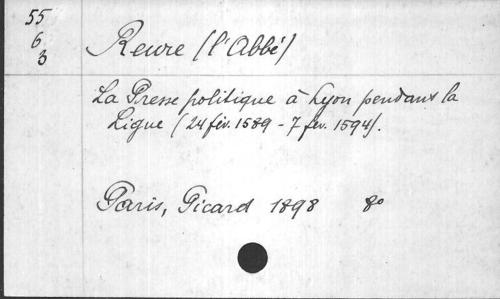 55
6
3
Reure (l'Abbé)
La Presse politique à Lyon pendant la
Ligue (24 fév. 1589 - 7 fév. 1594).
Paris, Picard 1898 8o